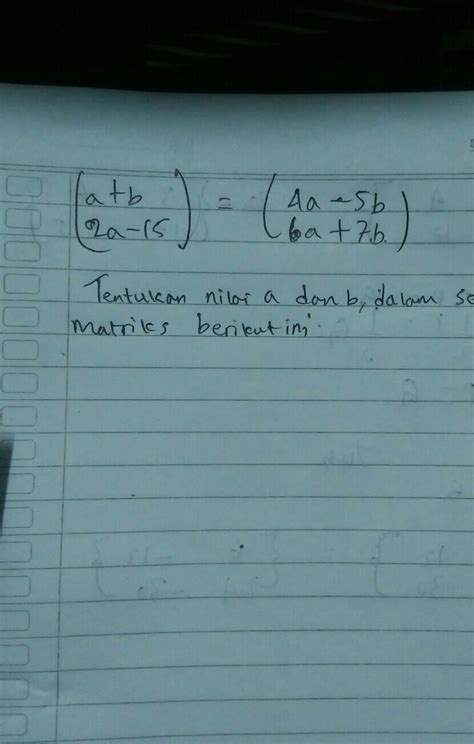 (a+b) = (4a-5b)
(2a-15) (6a+7b)
Tentukan nilai a dan b, dalam
matriks berikut ini